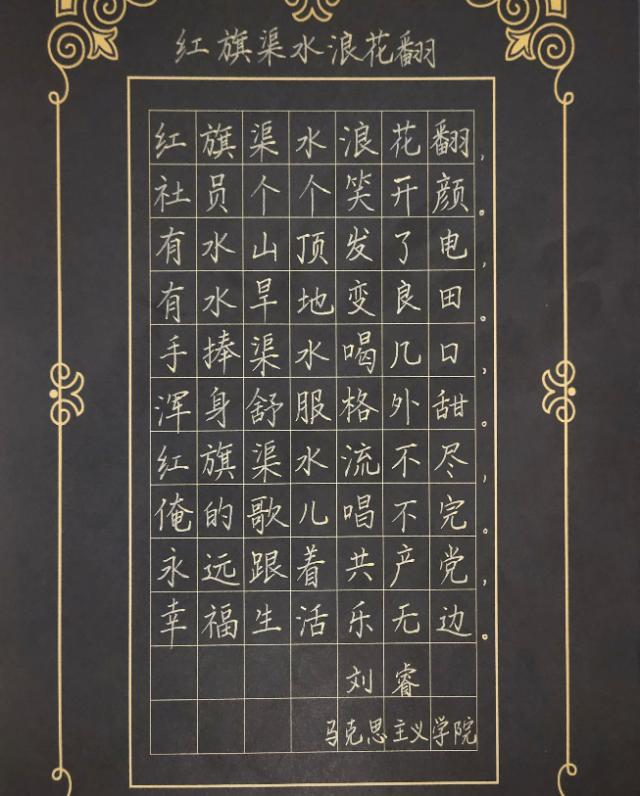 红旗渠水浪花翻
红旗渠水浪花翻，
社员个个笑开颜。
有水山顶发了电，
有水旱地变良田。
手捧渠水喝几口，
浑身舒服格外甜。
红旗渠水流不尽，
俺的歌儿唱不完。
永远跟着共产党，
幸福生活乐无边。
刘睿
马克思主义学院